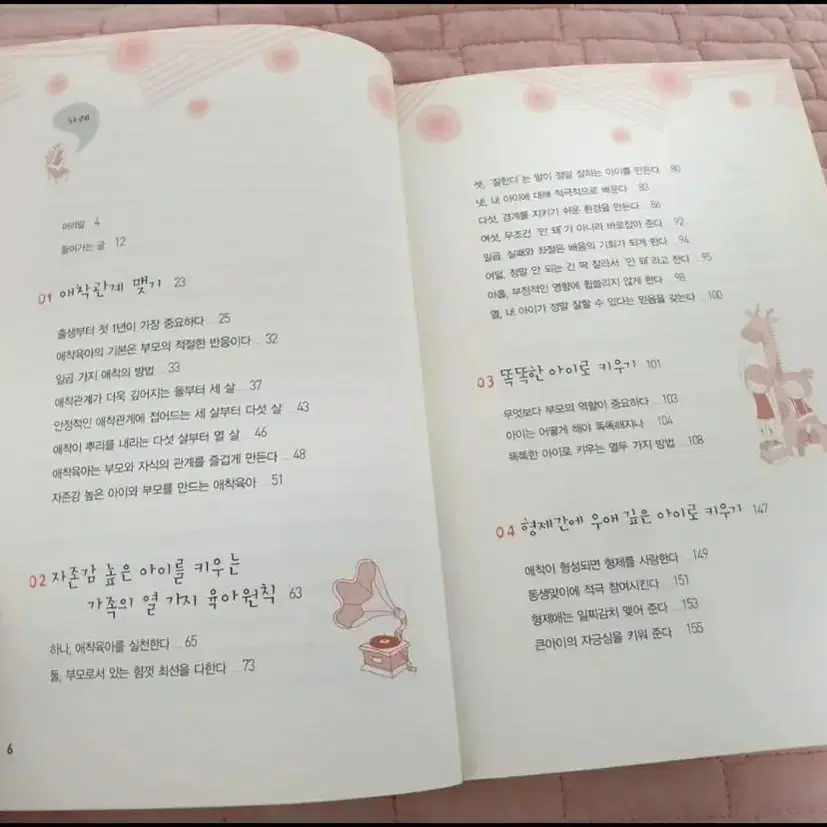 차례
머리말 4
들어가는 글 12
01 애착관계 맺기 23
출생부터 첫 1년이 가장 중요하다 25
애착육아의 기본은 부모의 적절한 반응이다 32
일곱 가지 애착의 방법 33
애착관계가 더욱 깊어지는 돌부터 세 살 37
안정적인 애착관계에 접어드는 세 살부터 다섯 살 43
애착이 뿌리를 내리는 다섯 살부터 열 살 46
애착육아는 부모와 자식의 관계를 즐겁게 만든다 48
자존감 높은 아이와 부모를 만드는 애착육아 51
02 자존감 높은 아이를 키우는
가족의 열 가지 육아원칙 63
하나, 애착육아를 실천한다 65
둘, 부모로서 있는 힘껏 최선을 다한다 73
6
셋, '잘한다'는 말이 정말 잘하는 아이를 만든다 80
넷, 내 아이에 대해 적극적으로 배운다 83
다섯, 경계를 지키기 쉬운 환경을 만든다 86
여섯, 무조건 '안 돼'가 아니라 바로잡아 준다 92
일곱, 실패와 좌절은 배움의 기회가 되게 한다 94
여덟, 정말 안 되는 건 딱 잘라서 '안 돼'라고 한다 95
아홉, 부정적인 영향에 휩쓸리지 않게 한다 98
열, 내 아이가 정말 잘할 수 있다는 믿음을 갖는다 100
03 똑똑한 아이로 키우기 101
무엇보다 부모의 역할이 중요하다 103
아이는 어떻게 해야 똑똑해지나 104
똑똑한 아이로 키우는 열두 가지 방법 108
04 형제간에 우애 깊은 아이로 키우기 147
애착이 형성되면 형제를 사랑한다 149
동생맞이에 적극 참여시킨다 151
형제애는 일찌감치 맺어 준다 153
큰아이의 자긍심을 키워 준다 155